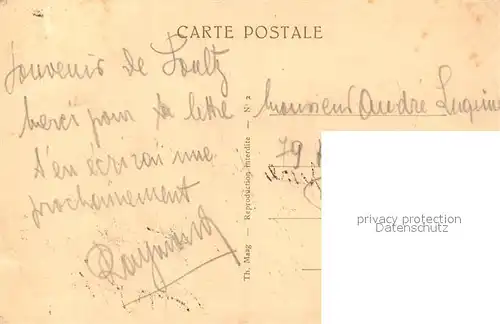 CARTE POSTALE
Souvenir de Soultz
merci pour ta lettre
t'en écrirai une
prochainement
Raymond
Monsieur André
79
Th. Maag - Reproduction interdite - N° 2
privacy protection
Datenschutz